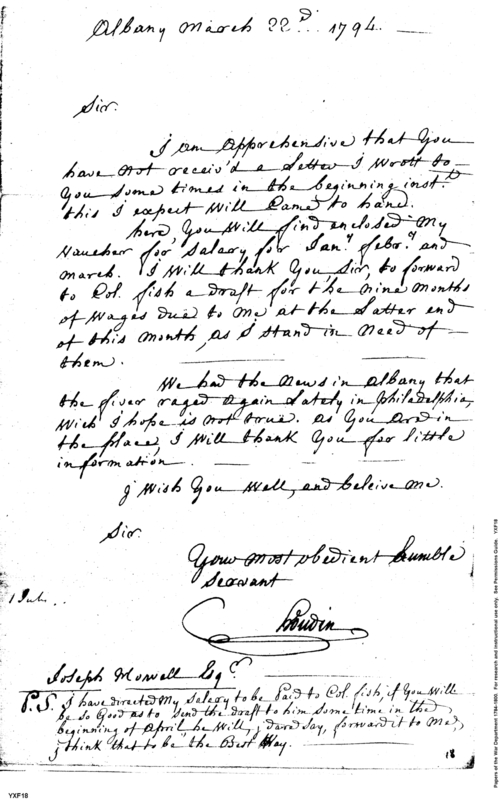 Albany March 22d. 1794.
Sir.
I am Apprehensive that You
have Not receiv'd a Letter I Wrott to
You Some times in the beginning inst.t
this I expect Will Came to hand.
here, You Will find enclosed My
Vaucher for Salary for Jan.y febr.y and
march. I Will thank You Sir, to forward
to Col. fish a draft for the nine months
of Wages due to Me, at the Latter end
of this month, as I Stand in Need of
them.
We had the News in Albany that
the fiver raged Again Lately in philadelphia,
Wich I hope is not true. as You Are in
the place, I Will thank You for little
information.
j Wish You Well, and beleive Me.
Sir.
Your Most obedient humble
Servant
Joseph Howell Esq.r
P.S. I have directed My Salary to be Paid to Col. fish, if You Will
be So Good as to Send the draft to him Some time in the
beginning of April he Will, j dare Say, forward it to Me,
j think that to be the Best Way.
18
YXF18
Papers of the War Department 1784-1800. For research and instructional use only. See Permissions Guide. YXF18